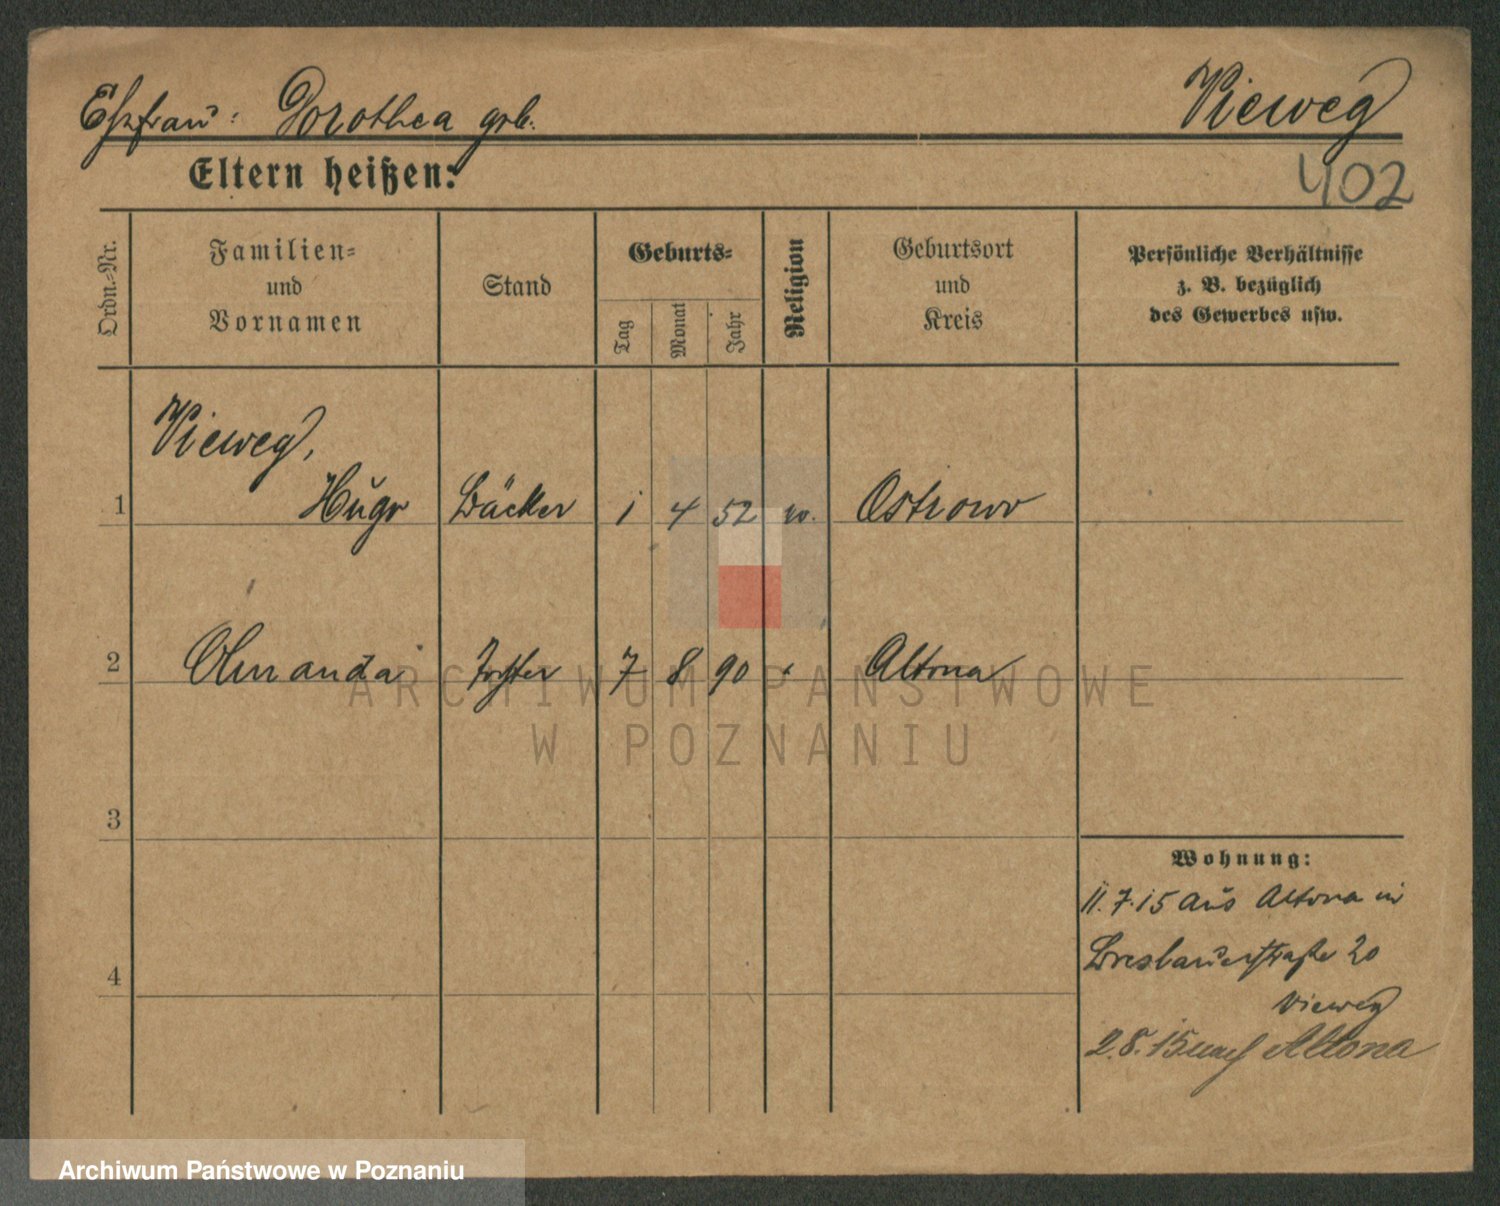 Ehefrau: Dorothea geb. Vieweg
Eltern heißen:
402
Ordn.-Nr.
Familien-
und
Vornamen
Stand
Geburts-
Tag
Monat
Jahr
Religion
Geburtsort
und
Kreis
Persönliche Verhältnisse
z. B. bezüglich
des Gewerbes usw.
Vieweg,
1 Hugo Bäcker 1 4 52 Ostrowo
2 Amanda Tochter 7 8 90 Altona
3
4
Wohnung:
11.7.15 aus Altona in
Breslauerstraße 20
Vieweg
2.8.15 nach Altona
ARCHIWUM PAŃSTWOWE
W POZNANIU
Archiwum Państwowe w Poznaniu